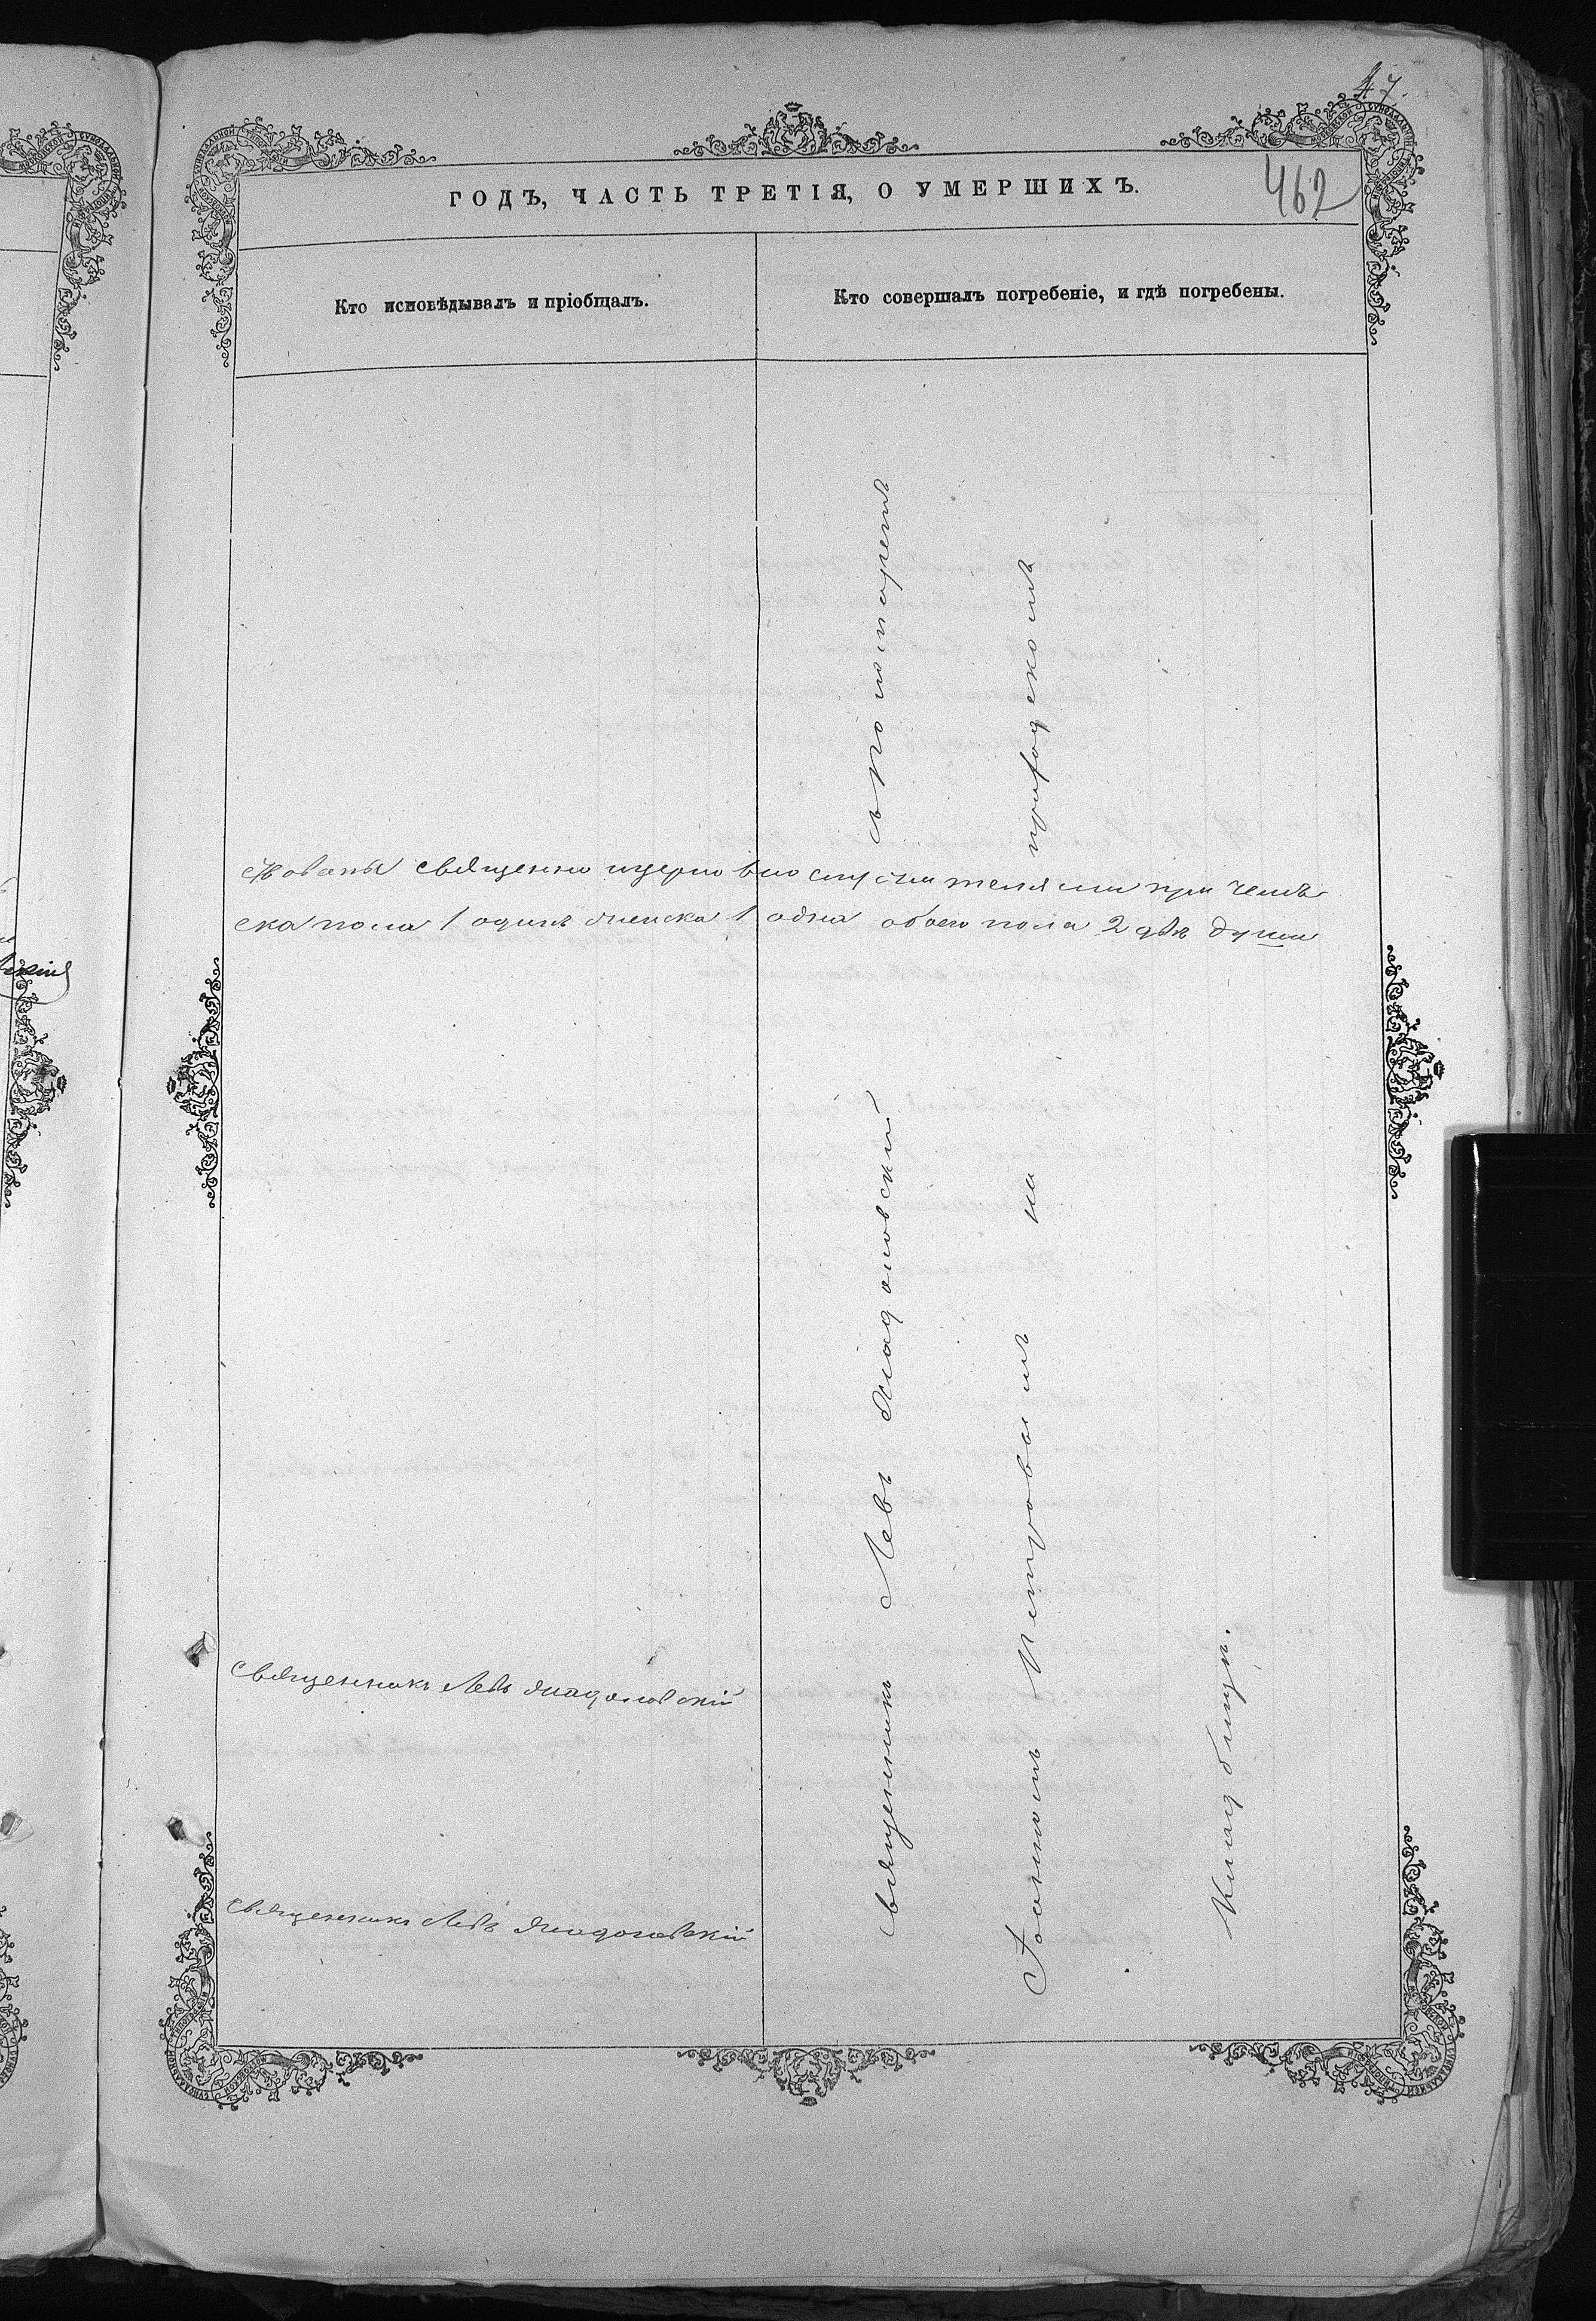 47.
462
ГОДЪ, ЧАСТЬ ТРЕТІЯ, О УМЕРШИХЪ.
Кто исповѣдывалъ и пріобщалъ.
Кто совершалъ погребеніе, и гдѣ погребены.
священно церковно служителями при чемъ
ска пола 1 одинъ женска 1 одна обоего пола 2 двѣ души
Священникъ Левъ
Священникъ Левъ
Священникъ Левъ съ
Іоанномъ Петровымъ на приходскомъ
Кладбищѣ.